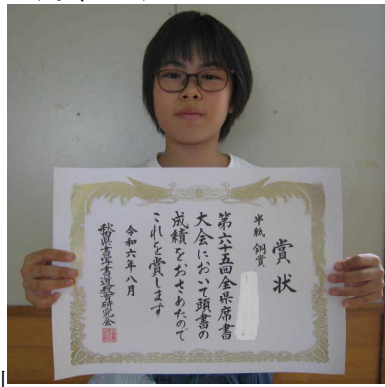 賞状
半紙 銅賞
第六十五回全県席書
大会において頭書の
成績をおさめたので
これを賞します
令和六年八月
秋田県書写書道教育研究会